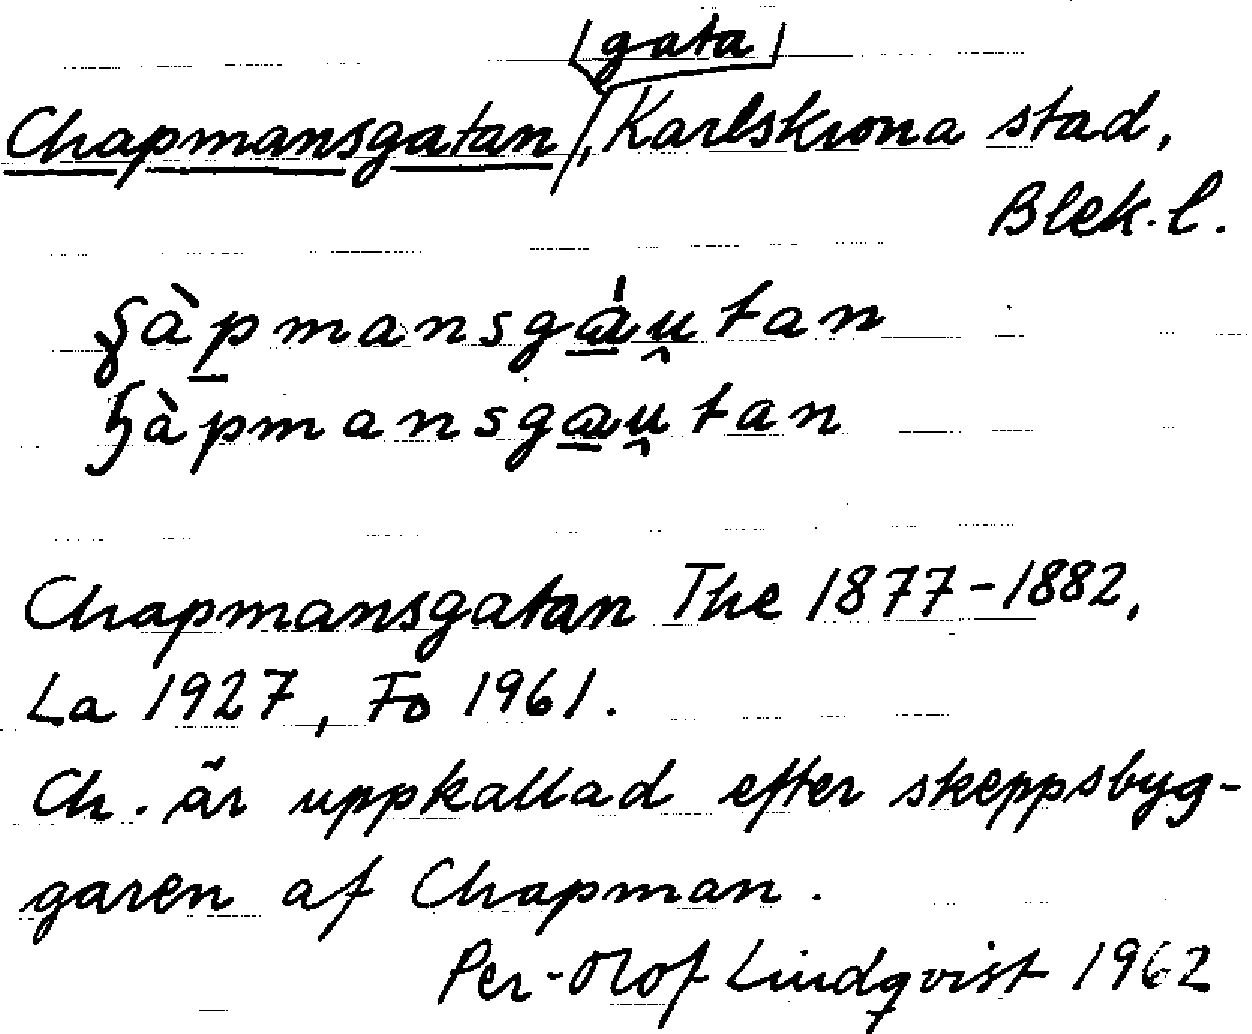 (gata)
Chapmansgatan, Karlskrona stad,
Blek. l.
Chapmansgatan The 1877-1882,
La 1927, Fo 1961.
Ch. är uppkallad efter skeppsbyg-
garen af Chapman.
Per-Olof Lindqvist 1962